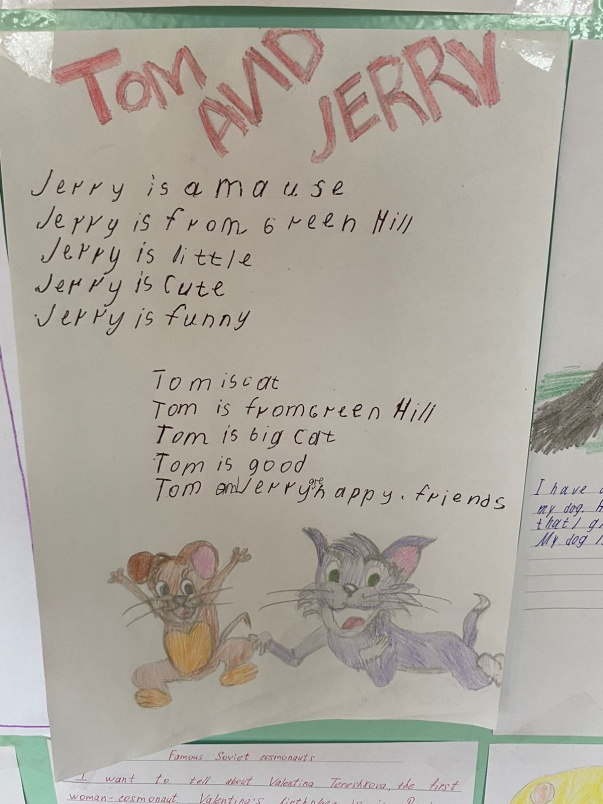 TOM AND JERRY
Jerry is a mause
Jerry is from Green Hill
Jerry is little
Jerry is Cute
Jerry is funny
Tom is cat
Tom is from Green Hill
Tom is big cat
Tom is good
Tom and Jerry are happy. friends
I have
my dog. H
that I g
My dog i
Famous Soviet cosmonauts
I want to tell about Valentina Tereshkova, the first
woman-cosmonaut Valentina's birthplace is in